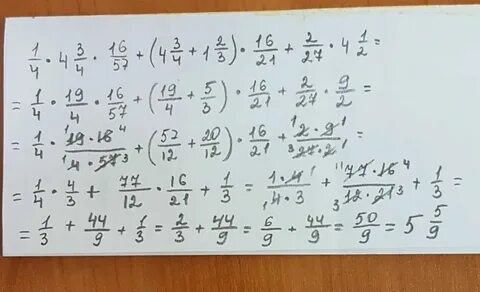 1/4 · 4 3/4 · 16/57 + (4 3/4 + 1 2/3) · 16/21 + 2/27 · 4 1/2 =
= 1/4 · 19/4 · 16/57 + (19/4 + 5/3) · 16/21 + 2/27 · 9/2 =
= 1/4 · (19·16)/(4·57) + (57/12 + 20/12) · 16/21 + (2·9)/(27·2) =
= 1/4 · 4/3 + 77/12 · 16/21 + 1/3 = (1·4)/(4·3) + (77·16)/(12·21) + 1/3 =
= 1/3 + 44/9 + 1/3 = 2/3 + 44/9 = 6/9 + 44/9 = 50/9 = 5 5/9